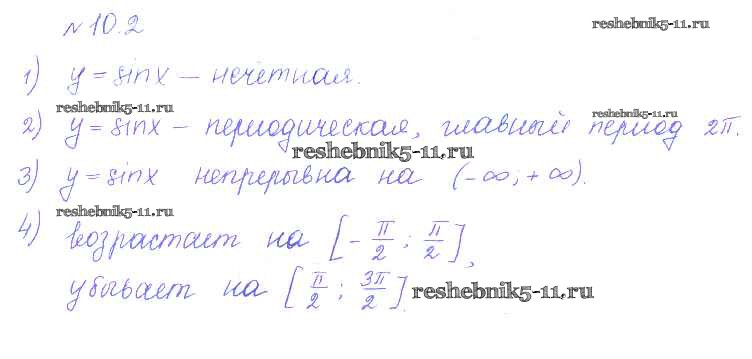 № 10.2
reshebnik5-11.ru
1) y = sinx – нечётная.
reshebnik5-11.ru
reshebnik5-11.ru
2) y = sinx – периодическая, главный период 2π.
reshebnik5-11.ru
3) y = sinx непрерывна на (-∞; +∞).
reshebnik5-11.ru
4) возрастает на [-π/2; π/2],
убывает на [π/2; 3π/2].
reshebnik5-11.ru